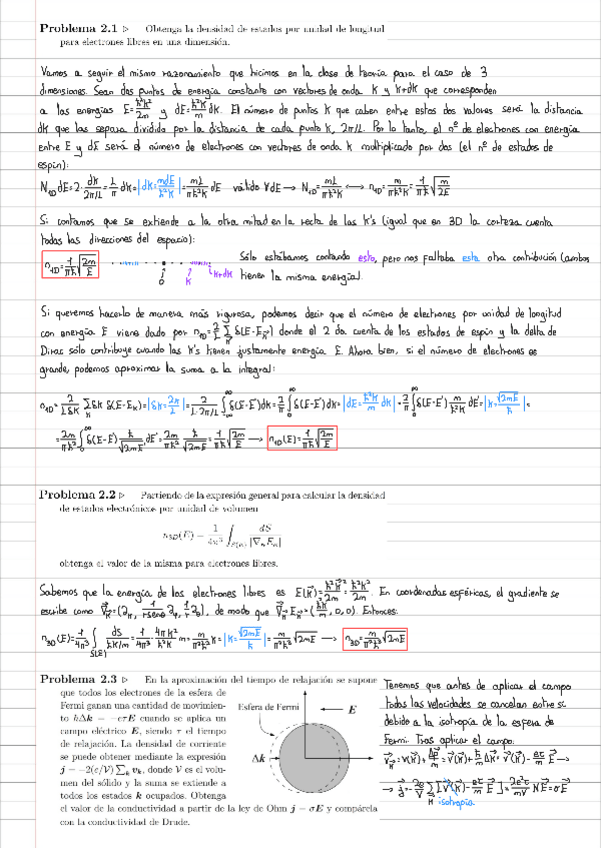 Problema 2.1 ▷ Obtenga la densidad de estados por unidad de longitud
para electrones libres en una dimensión.
Vamos a seguir el mismo razonamiento que hicimos en la clase de teoría para el caso de 3
dimensiones. Sean dos puntos de energía constante con vectores de onda K y K+dK que corresponden
a las energías E=ħ²k²/2m y dE=ħ²K/m dK. El número de puntos K que caben entre estos dos valores será la distancia
dK que las separa dividida por la distancia de cada punto K, 2π/L. Por lo tanto, el nº de electrones con energía
entre E y dE será el número de electrones con vectores de onda K multiplicado por dos (el nº de estados de
espín):
N₁D dE=2· dK/(2π/L) = L/π dK=|dK= mdE/ħ²K|= mL/πħ²K dE válido ∀dE → N₁D= mL/πħ²K ↔ n₁D= m/πħ²K = 1/πħ √(m/2E)
Si contamos que se extiende a la otra mitad en la recta de las K's (igual que en 3D la corteza cuenta
todas las direcciones del espacio):
n₁D= 1/πħ √(2m/E)
0 K K+dK
Sólo estábamos contando esto, pero nos faltaba esta otra contribución (ambos
tienen la misma energía).
Si queremos hacerlo de manera más rigurosa, podemos decir que el número de electrones por unidad de longitud
con energía E viene dado por n₁D= 2/L ∑ δ(E-E_K) donde el 2 da cuenta de los estados de espín y la delta de
Dirac sólo contribuye cuando las K's tienen justamente energía E. Ahora bien, si el número de electrones es
grande, podemos aproximar la suma a la integral:
n₁D= 2/LδK ∑ δK δ(E-E_K)=|δK= 2π/L|= 2/(L·2π/L) ∫ δ(E-E')dK= 2/π ∫ δ(E-E')dK=|dE= ħ²K/m dK|= 2/π ∫ δ(E-E') m/ħ²K dE'=|K= √2mE/ħ|=
= 2m/πħ² ∫ δ(E-E') ħ/√2mE' dE'= 2m/πħ² ħ/√2mE = 1/πħ √(2m/E) → n₁D(E)= 1/πħ √(2m/E)
Problema 2.2 ▷ Partiendo de la expresión general para calcular la densidad
de estados electrónicos por unidad de volumen
n₃D(E) = 1/4π³ ∫ dS/|∇ₖEₖ|
obtenga el valor de la misma para electrones libres.
Sabemos que la energía de los electrones libres es E(K)= ħ²K²/2m = ħ²K²/2m. En coordenadas esféricas, el gradiente se
escribe como ∇_K=(∂_K, 1/rsenθ ∂φ, 1/r ∂θ), de modo que ∇_K E_K=(ħ²K/m, 0, 0). Entonces:
n₃D(E)= 1/4π³ ∫ dS/ħK/m = 1/4π³ 4πK²/ħ²K m= m/π²ħ² K=|K= √2mE/ħ|= m/π²ħ³ √2mE → n₃D= m/π²ħ³ √2mE
S(E)
Problema 2.3 ▷ En la aproximación del tiempo de relajación se supone
que todos los electrones de la esfera de
Fermi ganan una cantidad de movimien-
to ħΔk = −eτE cuando se aplica un
campo eléctrico E, siendo τ el tiempo
de relajación. La densidad de corriente
se puede obtener mediante la expresión
j = −2(e/V) ∑ₖ vₖ, donde V es el volu-
men del sólido y la suma se extiende a
todos los estados k ocupados. Obtenga
el valor de la conductividad a partir de la ley de Ohm j = σE y compárela
con la conductividad de Drude.
Esfera de Fermi
E
Δk
Tenemos que antes de aplicar el campo
todas las velocidades se cancelan entre sí
debido a la isotropía de la esfera de
Fermi. Tras aplicar el campo:
v_K=v(K)+ Δp/m = v(K)+ ħ/m ΔK= v(K)- eτ/m E →
→ j=- 2e/V ∑ [v(K)- eτ/m E]= 2e²τ/mV NE=σE
isotropía